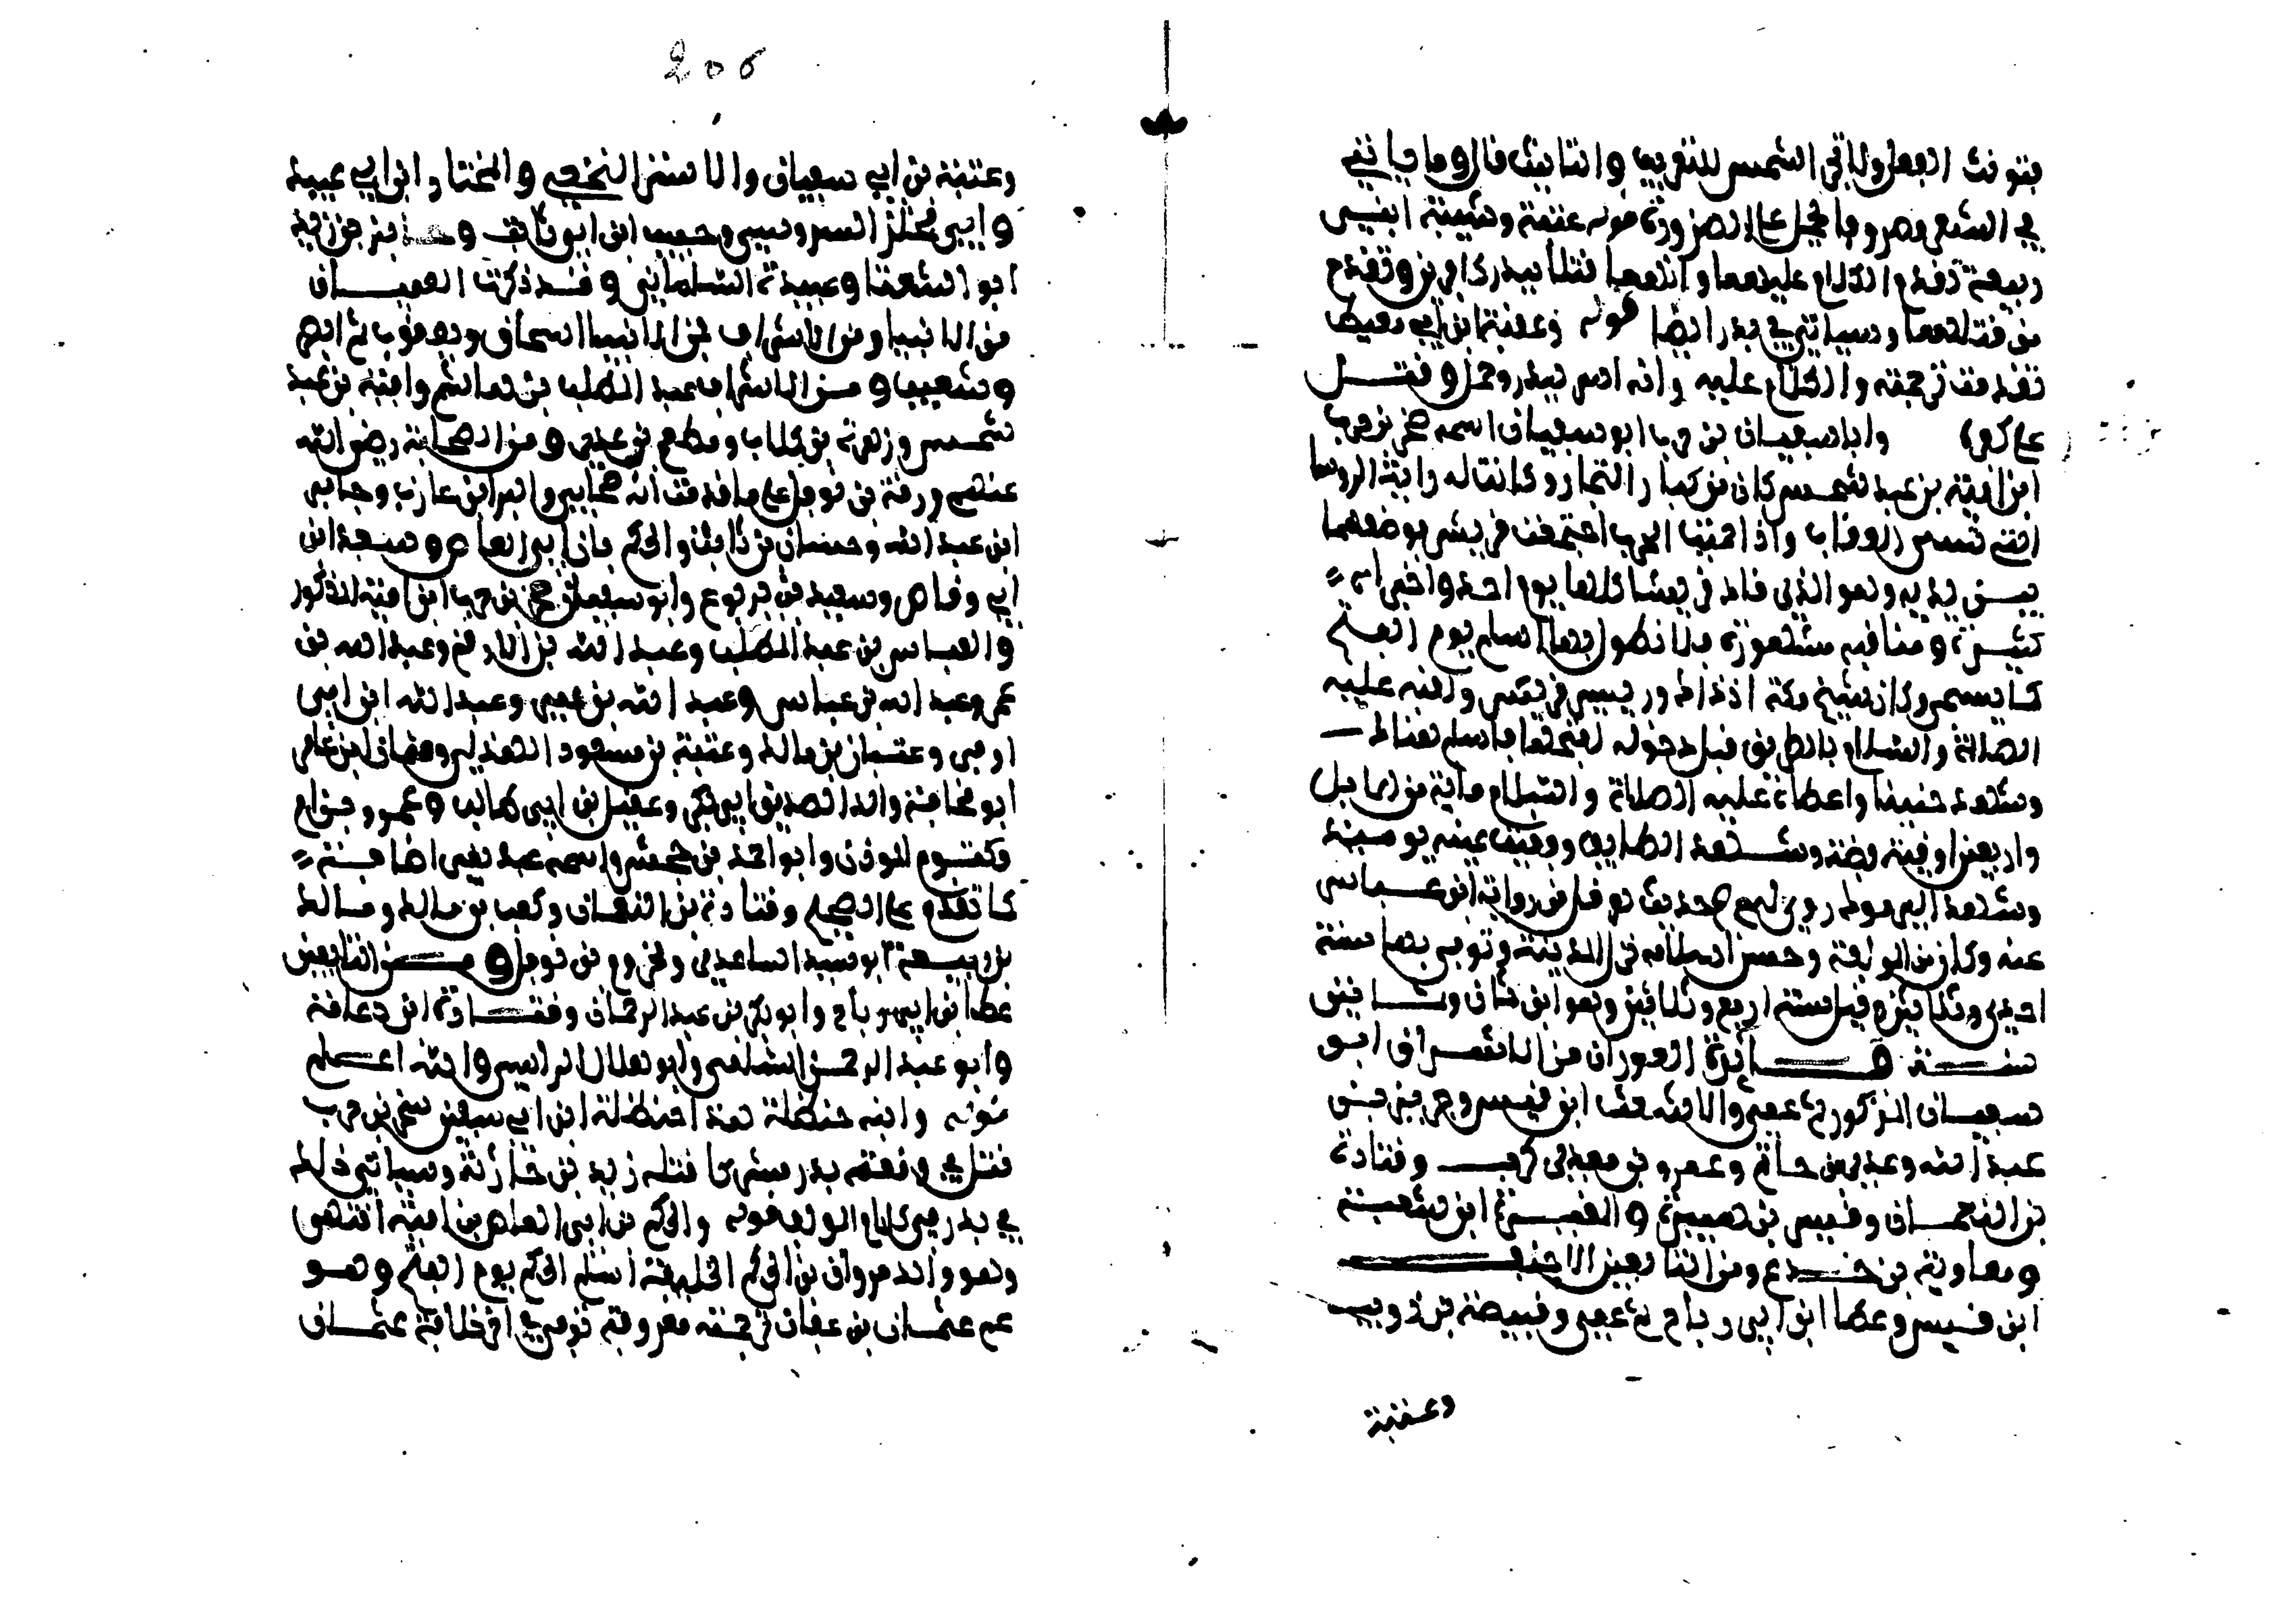 فتونث الفعل ولا في الشمس للتعريف والتانيث قال وما ياتي
في الشعر مصروفا محمل على الضرورة قوله عتبة وشيبة ابني
ربيعة تقدم الكلام عليهما وانهما قتلا ببدر كافرين وتقدم
من قتلهما وسياتي في بدر ايضا قوله وعقبة ابن ابي معيط
تقدمت ترجمته والكلام عليه وانه اسر ببدر وحمل وقتل
على كفر واباسفيان بن حرب ابو سفيان اسمه صخر بن حرب
ابن امية بن عبد شمس كان من كبار التجار وكانت له راية الروسا
التي تسمى العقاب واذا حميت الحرب اجتمعت قريش فوضعتها
بيين يديه وهو الذي قاد قريشا كلها يوم احد واخباره
كثيرة ومناقبه مشهورة فلا نطول بها اسلم يوم الفتح
كما يسمى وكان شيخ مكة اذ ذاك ورييس قريش ولقيه عليه
الصلاة والسلام بالطريق قبل دخوله لفتحها فاسلم هناك
وشهد حنينا واعطاه عليه الصلاة والسلام ماية من الابل
واربعين اوقية فضة وشهد الطايف وفقيت عينه يوميذ
وشهد اليرموك روى له حديث هرقل من رواية ابن عباس
عنه وكان من المولفة وحسن اسلامه نزل المدينة وتوفي بها سنة
احدى وثلاثين وقيل سنة اربع وثلاثين وهو ابن ثمان وثمانين
سنة فايدة العوران من الاشراف ابو
سفيان المذكور والاشعث ابن قيس وجرير بن
عبد الله وعدي بن حاتم وعمرو بن معدي كرب وقتادة
بن النعمان وقيس بن والمغيرة ابن شعبة
ومعاوية بن خديج ومن التابعين الاحنف
ابن قيس وعطا ابن ابي رباح ثم عمي وقبيصة بن ذويب
وعتبة
206
وعتبة بن ابي سفيان والاشتر النخعي والمختار ابن ابي عبيد
وابي مجلز السدوسي وحبيب ابن ابي ثابت وجابر بن زيد
ابو الشعثا وعبيدة السلماني وقد ذكرت العميان
من الانبيا ومن الاشراف فمن الانبيا اسحاق ويعقوب
وشعيب ومن الاشراف عبد المطلب بن هاشم وامية بن عبد
شمس وزهرة بن كلاب ومطعم بن عدي ومن الصحابة رضي الله
عنهم ورقة بن نوفل على ما قدمت انه صحابي والبرا ابن عازب وجابر
ابن عبد الله وحسان بن ثابت والحكم بن ابي العاص وسعد ابن
ابي وقاص وسعيد بن يربوع وابو سفيان صخر بن حرب ابن امية المذكور
والعباس بن عبد المطلب وعبد الله بن الارقم وعبد الله بن
عمر وعبد الله بن عباس وعبد الله بن عمير وعبد الله ابن ابي
اوفى وعتبان بن مالك وعتبة بن مسعود الهذلي وعثمان ابن عامر
ابو قحافة والد الصديق ابي بكر وعقيل ابن ابي طالب وعمرو بن ام
مكتوم الموذن وابو احمد بن جحش واسمه عبد بغير اضافة
كما تقدم على الصحيح وقتادة بن النعمان وكعب بن مالك ومالك
بن ربيعة ابو اسيد الساعدي ومخرمة بن نوفل ومن التابعين
عطا بن ابي رباح وابو بكر بن عبد الرحمان وقتادة ابن دعامة
وابو عبد الرحمن السلمي وابو هلال الراسبي والله اعلم
قوله وابنه حنظلة هذا حنظلة ابن ابي سفين صخر بن حرب
قتل في وقعة بدر مشركا قتله زيد بن حارثة وسياتي ذلك
في بدر من كلام المولف قوله والحكم بن ابي العاص بن امية انتهى
وهو والد مروان بن الحكم الخليفة اسلم الحكم يوم الفتح وهو
عم عثمان بن عفان ترجمته معروفة توفي في اخر خلافة عثمان